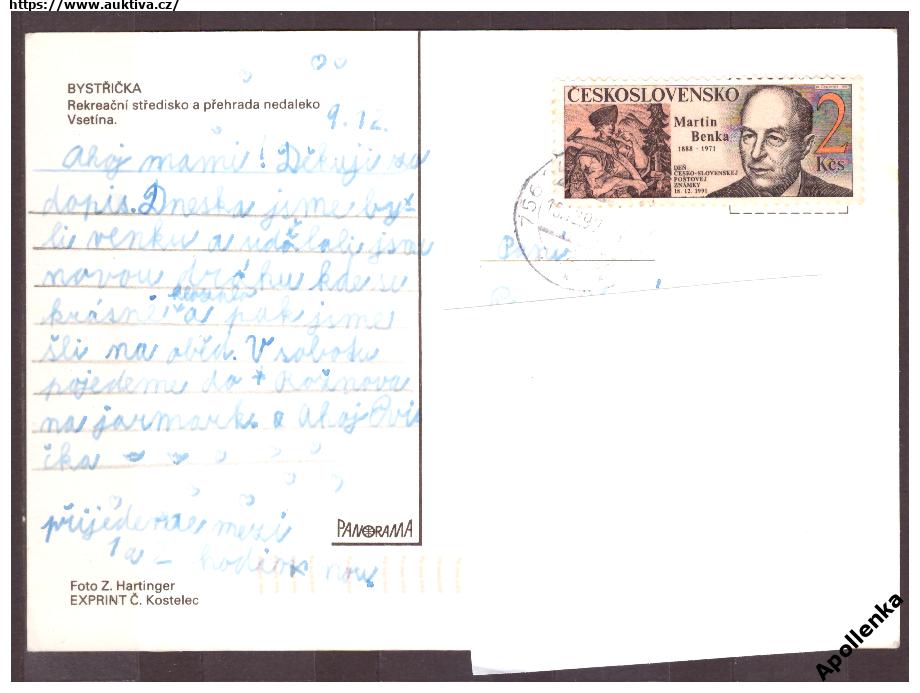 https://www.auktiva.cz/
BYSTŘIČKA
Rekreační středisko a přehrada nedaleko
Vsetína.
9. 12.
Ahoj mami! Děkuji za
dopis. Dneska jsme by-
li venku a udělali jsme
novou dráhu kde se
krásně a pak jsme
šli na oběd. V sobotu
pojedeme do Rožnova
na jarmark. Ahoj
čka
přijedeme mezi
hodinou
PANORAMA
Foto Z. Hartinger
EXPRINT Č. Kostelec
ČESKOSLOVENSKO
Martin
Benka
1888 - 1971
DEŇ
ČESKO-SLOVENSKEJ
POŠTOVEJ
ZNÁMKY
18. 12. 1991
2
Kčs
756
Paní
Apollenka